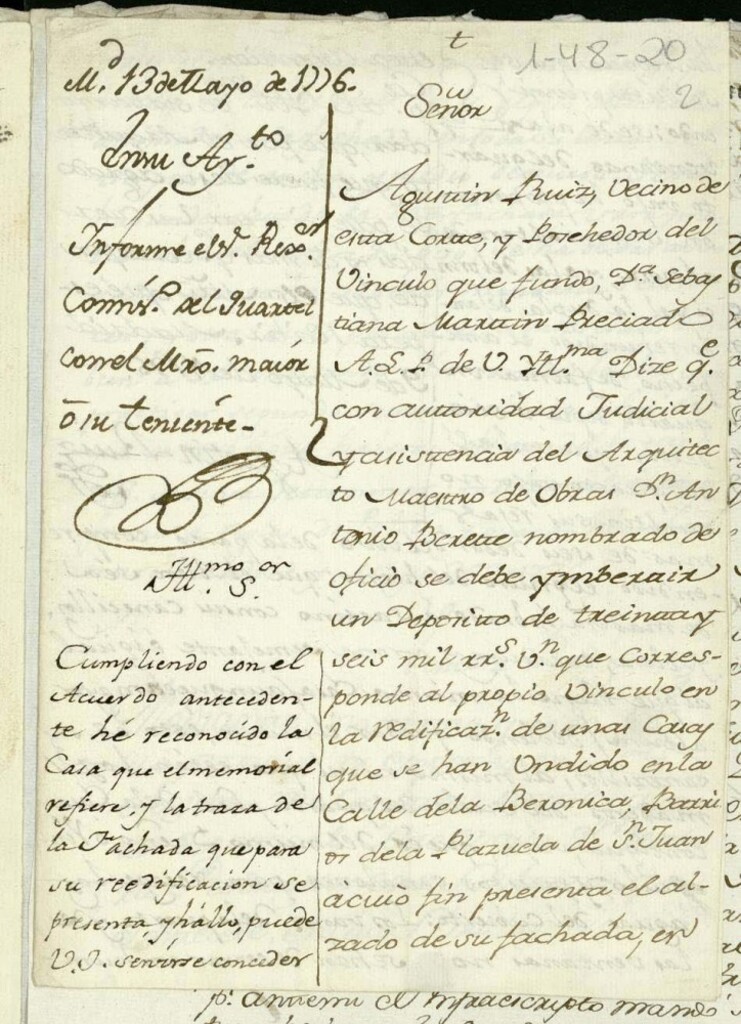 t
1-48-20
2
M.d 13 de Mayo de 1776.
En su Ay.to
Informe el S.r Rex.or
Comis.o del Quartel
con el Mro. maior
ó su teniente.
Yll.mo S.or
Cumpliendo con el
Acuerdo anteceden-
te hé reconocido la
Casa que el memorial
refiere, y la traza de
la Fachada que para
su reedificacion se
presenta, y hállo, puede
V.I. servirse conceder
Señor
Agustin Ruiz, Vecino de
esta Corte, y Posehedor del
Vinculo que fundo, D.a Sebas
tiana Martin Preciado
A.L.P. de V. Yll.ma Dize q.e
con auttoridad Judicial
y asistencia del Arquitec
to Maestro de Obras D.n An
tonio Berete nombrado de
oficio se debe ymbertir
un Deposito de treinta y
seis mil rr.s V.n que Corres-
ponde al propio Vinculo en
la redificaz.n de unas Casas
que se han Undido en la
Calle de la Beronica, Barri
o de la Plazuela de S.n Juan
a cuio fin presenta el al-
zado de su fachada, en
p.r antemi el Infraescripto mando